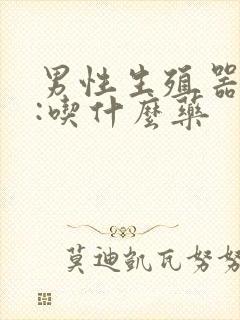 男性生殖器
:喫什麼藥
莫迪凱瓦努努